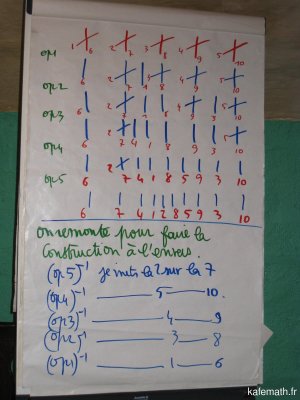 1 6 2 7 3 8 4 9 5 10
op1
6 2 7 1 8 4 9 5 10
op2
op3
6 2 7 1 8 4 9 3 5 10
op4
6 2 7 4 1 8 9 3 5 10
op5
6 7 4 1 2 8 5 9 3 10
6 7 4 1 2 8 5 9 3 10
on remonte pour faire la
construction à l'envers.
(op5)⁻¹ je mets le 2 sur le 7
(op4)⁻¹ —— 5 —— 10.
(op3)⁻¹ —— 4 —— 9
(op2)⁻¹ —— 3 —— 8
(op1)⁻¹ —— 1 —— 6
kafemath.fr